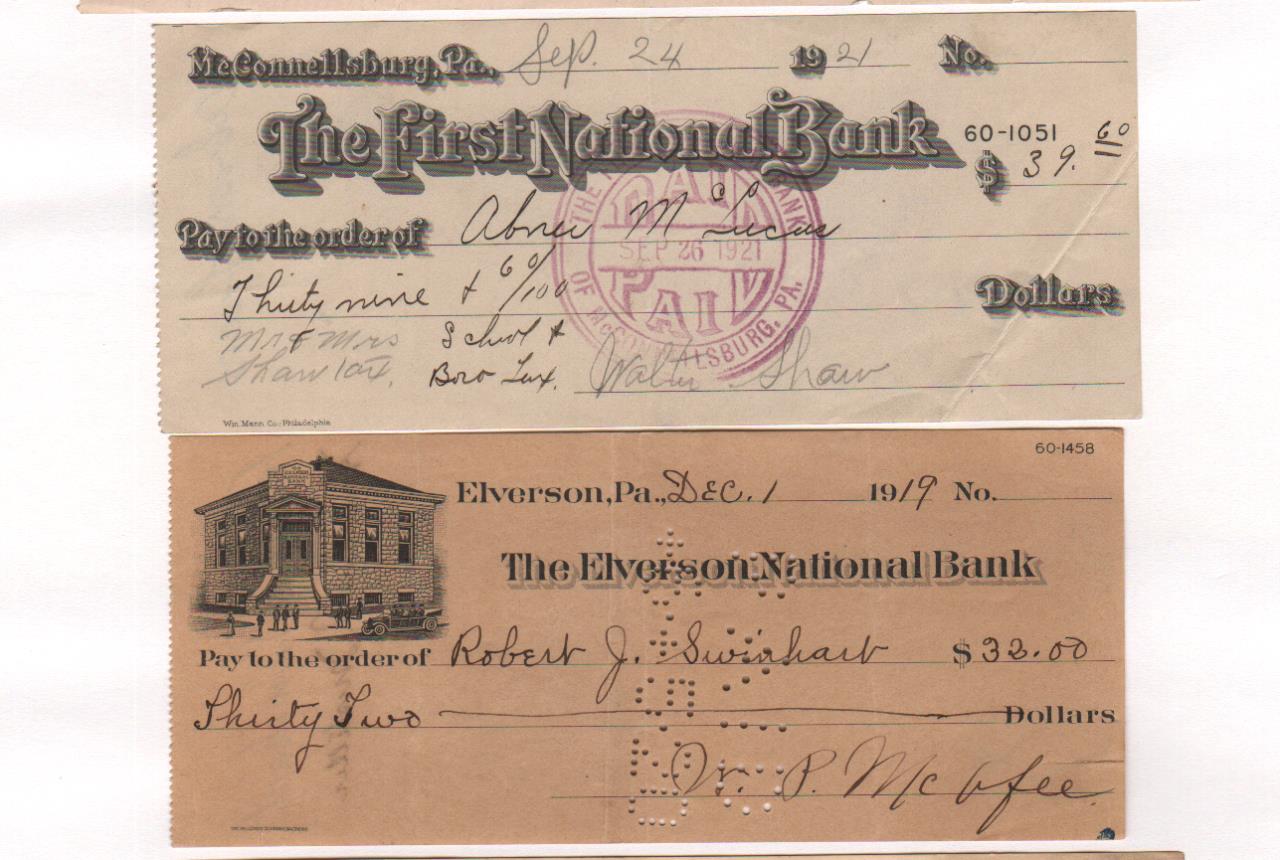 McConnellsburg, Pa., Sep. 24 1921 No.
The First National Bank
60-1051
$ 39. 60
Pay to the order of Abner Mc Lucas
Thirty nine & 60/100 Dollars
Mr & Mrs
Shaw tax.
School &
Boro Tax.
Walter Shaw
THE BANK
OF McCONNELLSBURG, PA.
PAID
SEP 26 1921
PAID
Wm. Mann Co., Philadelphia
60-1458
Elverson, Pa., Dec. 1 1919 No.
The Elverson National Bank
Pay to the order of Robert J. Swinhart $ 32.00
Thirty Two Dollars
W. P. McAfee